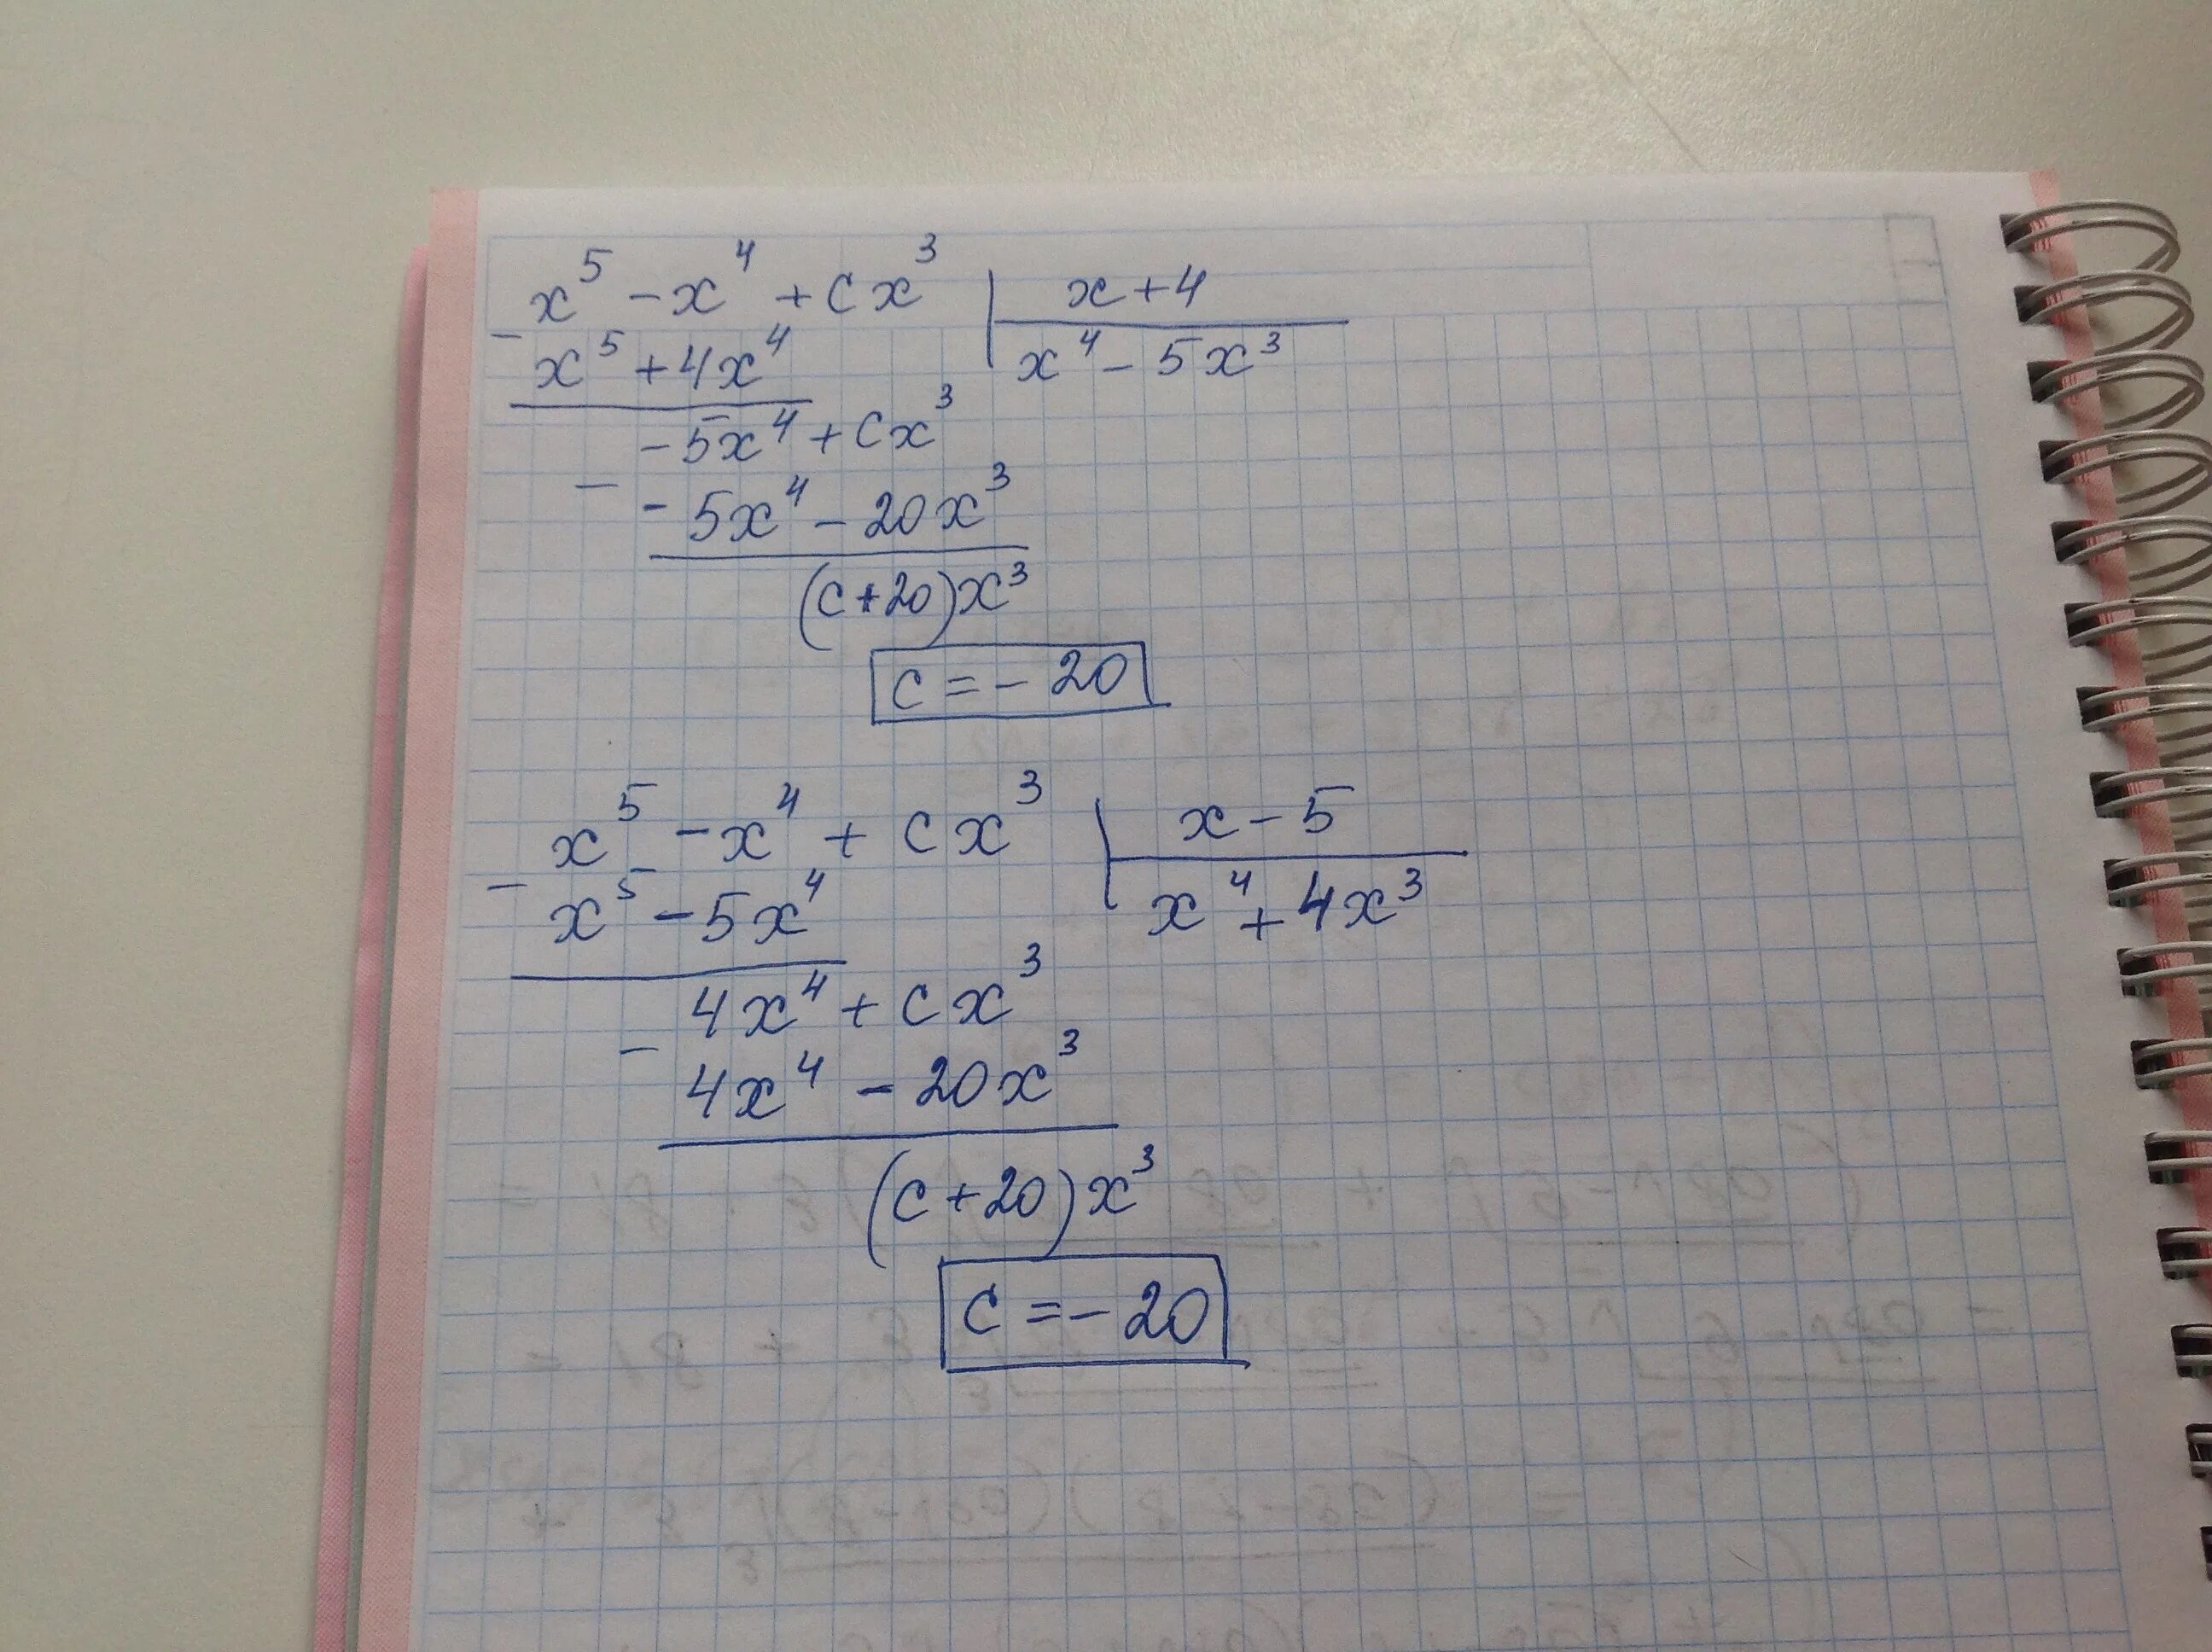 x⁵ - x⁴ + cx³ | x + 4
- x⁵ + 4x⁴ | x⁴ - 5x³
- 5x⁴ + cx³
- - 5x⁴ - 20x³
(c + 20)x³
c = - 20
x⁵ - x⁴ + cx³ | x - 5
- x⁵ - 5x⁴ | x⁴ + 4x³
4x⁴ + cx³
- 4x⁴ - 20x³
(c + 20)x³
c = - 20